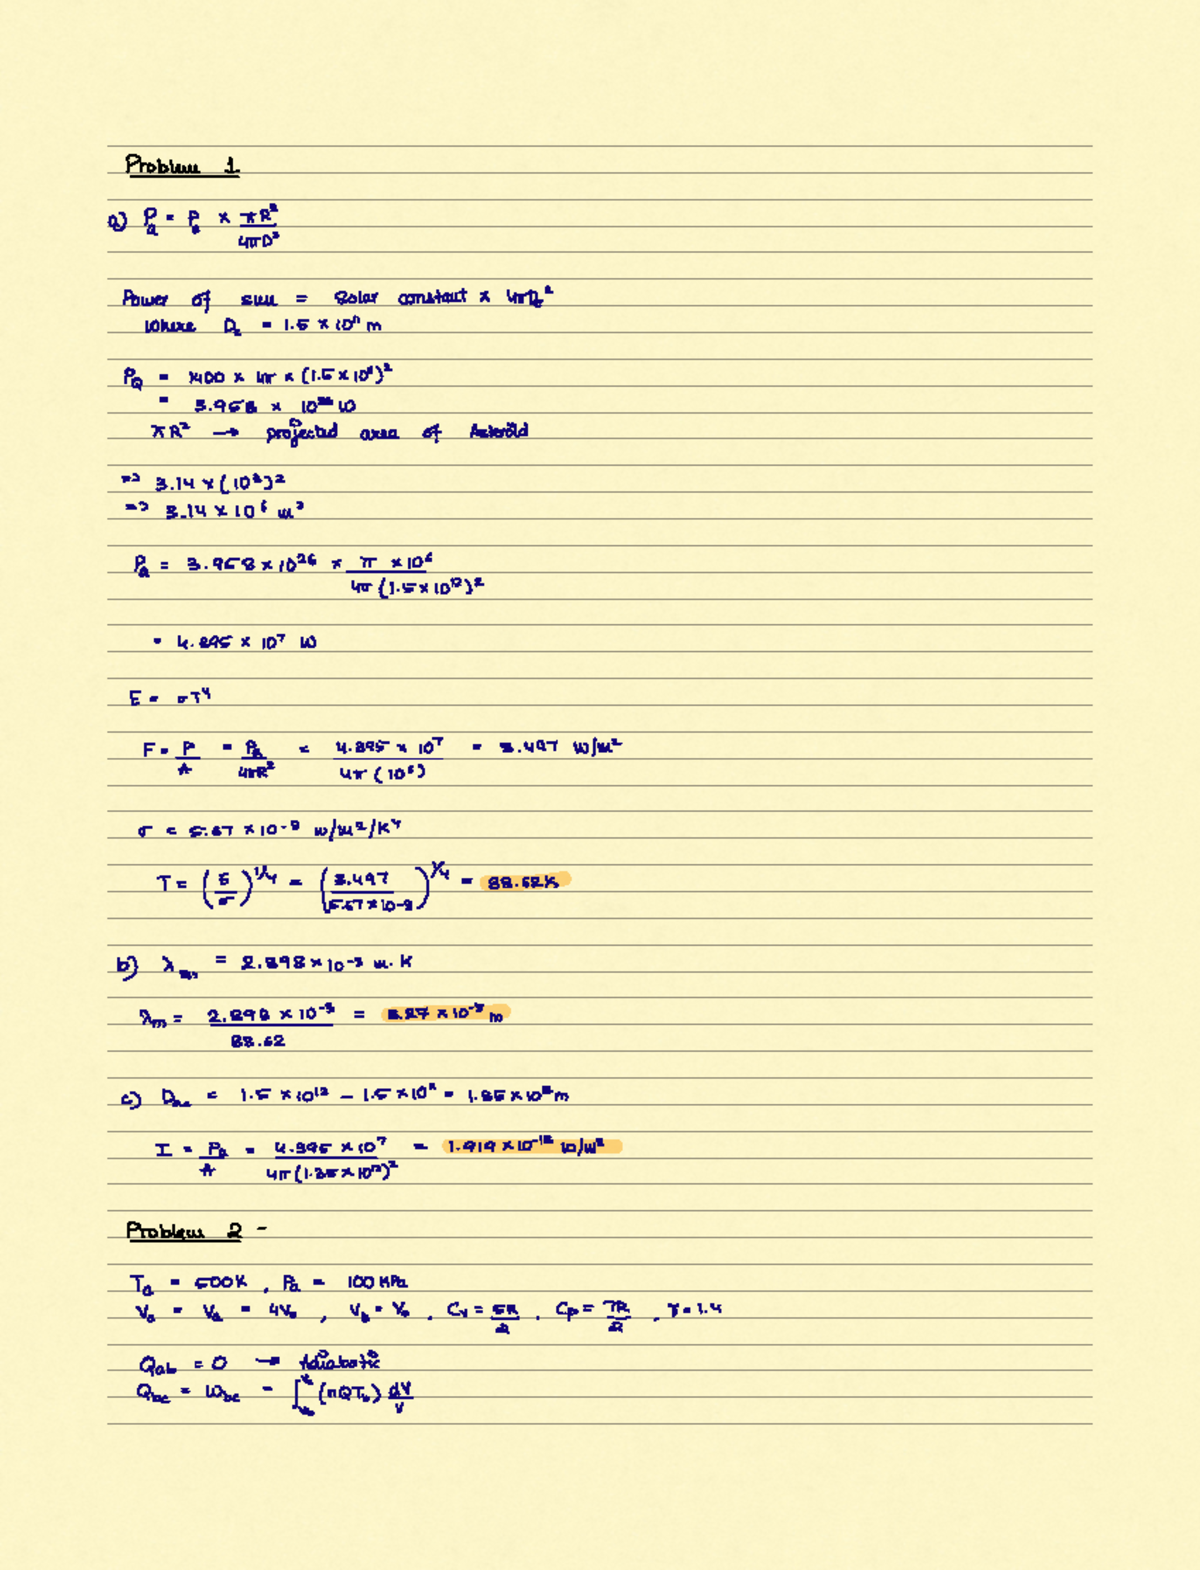 Problem 1
a) Pa = Ps × πR² / 4πD²
Power of sun = Solar constant × 4πDe²
Where De = 1.5 × 10¹¹ m
= 3.958 × 10²⁶ W
πR² → projected area of Asteroid
=> 3.14 × (10³)²
=> 3.14 × 10⁶ m²
Pa = 3.958 × 10²⁶ × π × 10⁶ / 4π (1.5 × 10¹²)²
= 4.395 × 10⁷ W
E = σT⁴
F = P / A = Pa / 4πR² = 4.395 × 10⁷ / 4π (10⁶) = 3.497 W/m²
σ = 5.67 × 10⁻⁸ W/m²/K⁴
T = (E / σ)^1/4 = (3.497 / 5.67 × 10⁻⁸)^1/4 = 88.62K
b) λm = 2.898 × 10⁻³ m.K
λm = 2.898 × 10⁻³ / 88.62 = 3.27 × 10⁻⁵ m
c) = 1.5 × 10¹² − 1.5 × 10¹¹ = 1.35 × 10¹² m
I = Pa / A = 4.395 × 10⁷ / 4π (1.35 × 10¹²)² = 1.919 × 10⁻¹⁸ W/m²
Problem 2 -
Ta = 500K , Pa = 100 KPa
= 4V₀ , Vb = V₀ , Cv = 5R / 2 , Cp = 7R / 2 , γ = 1.4
Qab = 0 → Adiabatic
Qbc = Wbc = dV / V